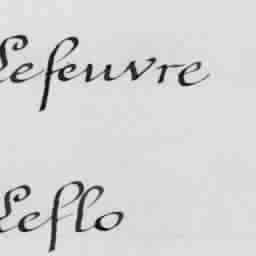 Lefeuvre
Leflo